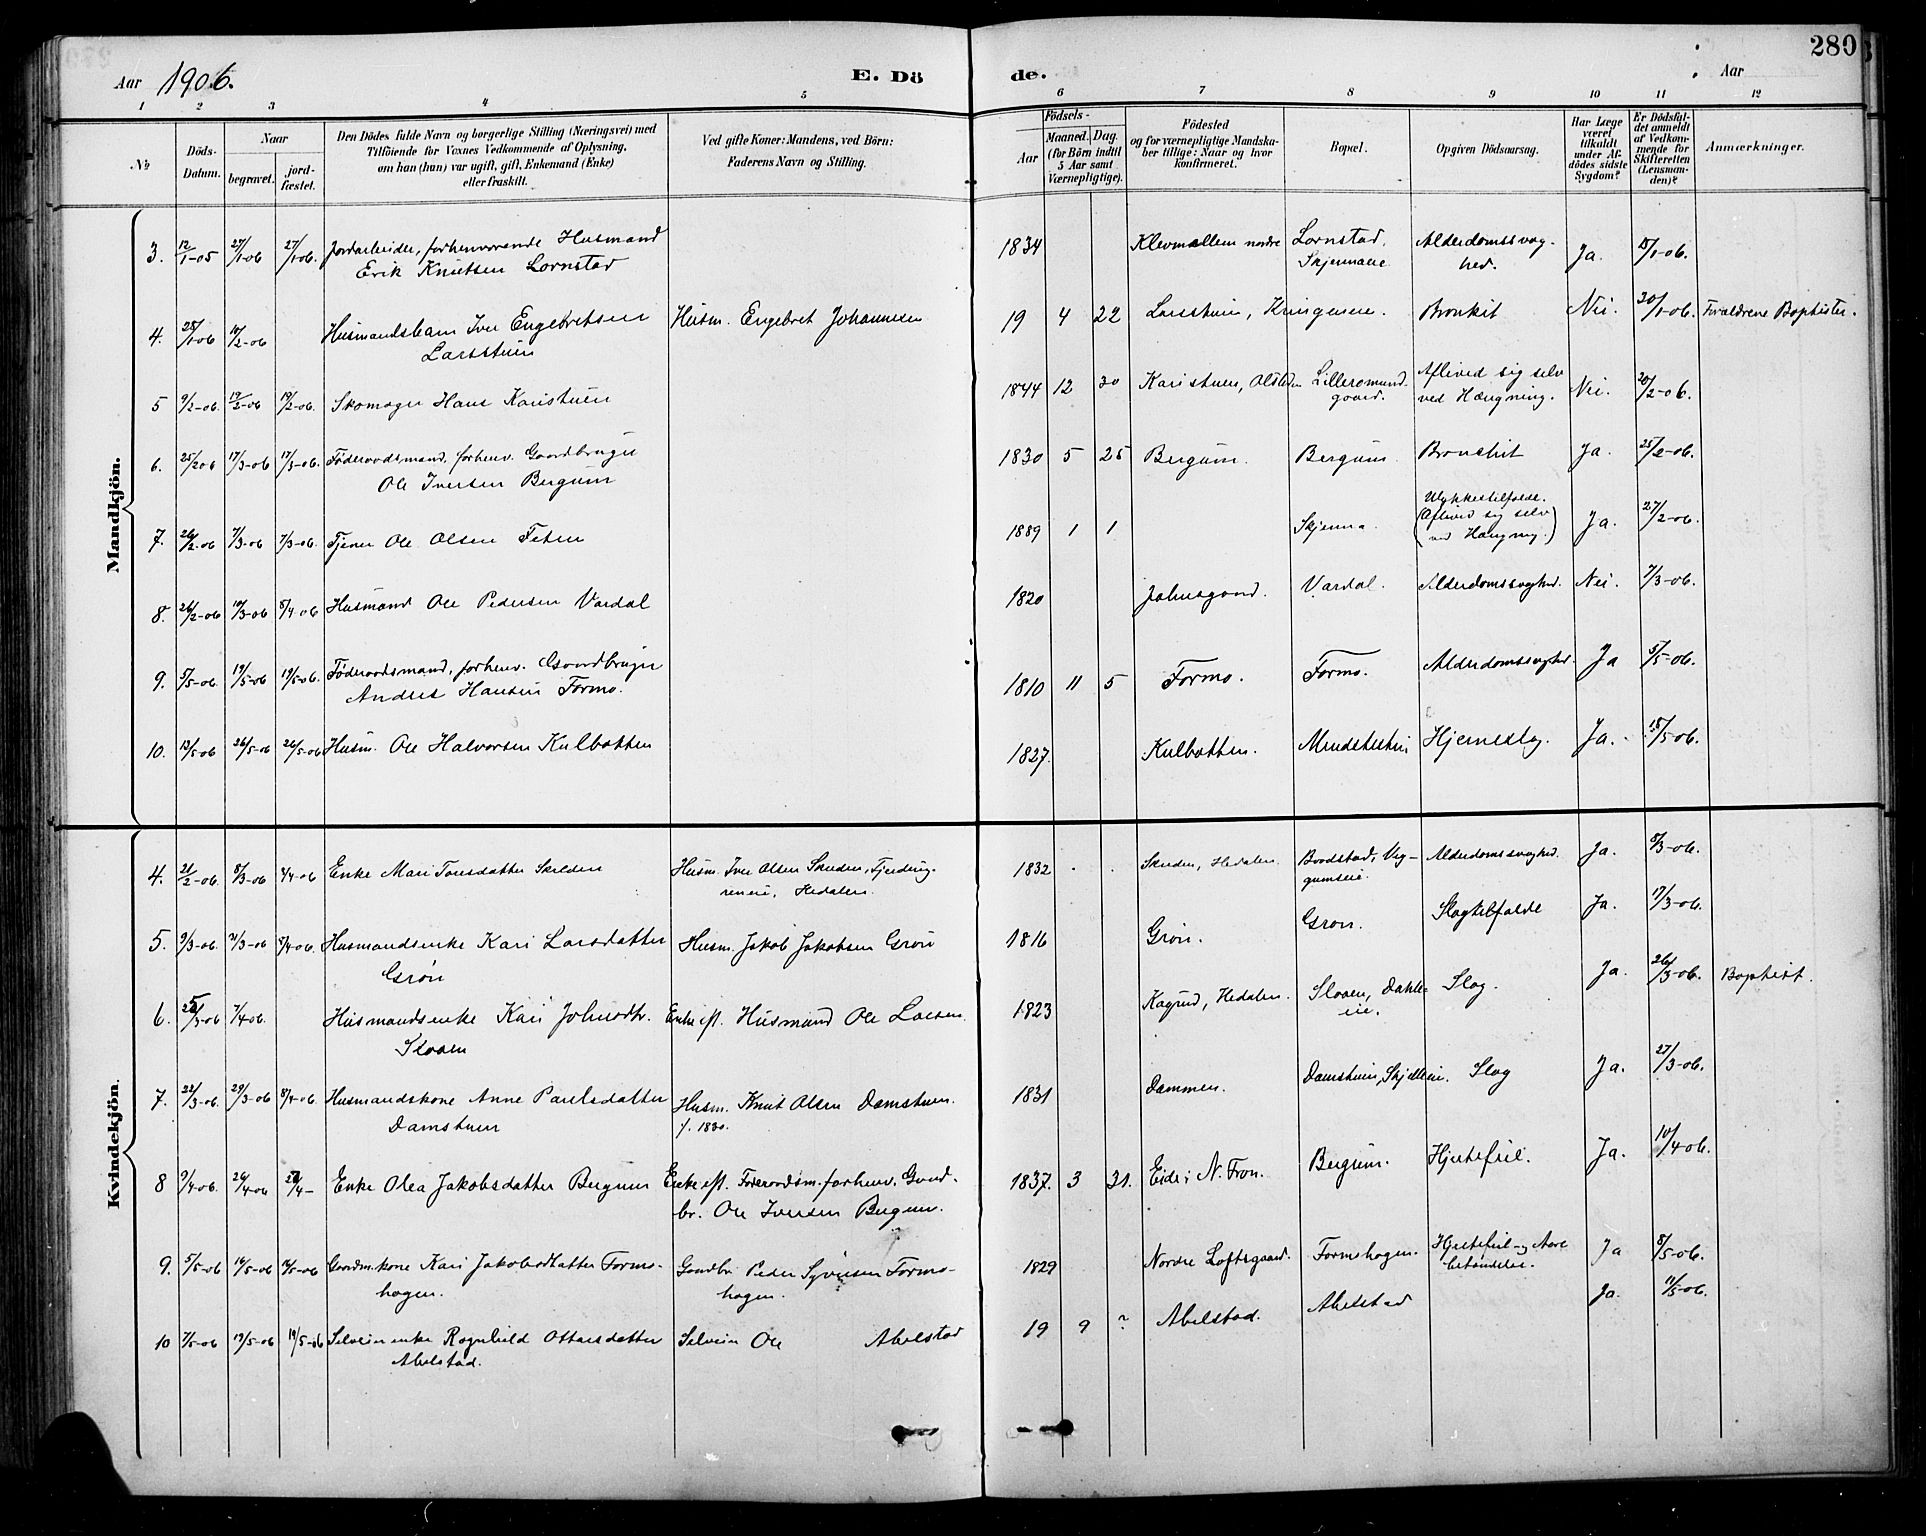 280
Aar 1906. E. Dö de. Aar
1 2 3 4 5 6 7 8 9 10 11 12
No
Döds-Datum.
Naar begravet. jordfæstet.
Den Dödes fulde Navn og borgerlige Stilling (Næringsvei) med
Tilföiende for Voxnes Vedkommende af Oplysning,
om han (hun) var ugift, gift, Enkemand (Enke)
eller fraskilt.
Ved gifte Koner: Mandens, ved Börn:
Faderens Navn og Stilling.
Födsels-
Aar Maaned. Dag.
(for Börn indtil
5 Aar samt
Værnepligtige).
Födested
og for værnepligtige Mandska-
ber tillige: Naar og hvor
konfirmeret.
Bopæl.
Opgiven Dödsaarsag.
Har Læge
været
tilkaldt
under Af-
dödes sidste
Sygdom?
Er Dödsfal-
det anmeldt
af Vedkom-
mende for
Skifteretten
(Lensman-
den)?
Anmærkninger.
Mandkjön.
3. 12/1-05 27/1-06 27/1-06. Jordarbeider, forhenværende Husmand 1834 Klevmællem nordre Lornstad, Alderdomssvag- Ja. 15/1-06.
Erik Knutsen Lornstad Skjennaeie hed.
4. 28/1-06 10/2-06 Husmandsbarn Iver Engebretsen Husm. Engebret Johannesen 19 4 22 Larsstuen, Bronkit Nei. 30/1-06. Forældrene Baptister.
Larsstuen
5 9/2-06. 19/2-06 19/2-06. Skomager Hans Karistuen 1844 12 30 Karistuen, Lilleromund- Aflived sig selv Nei. 20/2-06.
gaard. ved Hængning.
6. 25/2 06 17/3-06 17/3-06. Föderaadsmand, forhenv. Gaardbruger 1830 5 25 Bergum. Bergum Bronchit Ja. 25/2-06.
Ole Iversen Bergum
7. 26/2-06 7/3-06 7/3-06. Tjener Ole Olsen Feten 1889 1 1 Skjenna. Ulykkestilfælde. Ja. 27/2-06.
(Aflived sig selv
ved Hængning.)
8. 26/2-06 10/3-06 8/4 06 Husmand Ole Pedersen Vardal 1820 Johnsgaard. Vardal. Alderdomssvaghed. Nei. 7/3-06.
9. 5/5-06. 19/5-06 19/5-06. Föderaadsmand, forhenv. Gaardbruger 1810 11 5 Formo. Formo. Alderdomssvaghed. Ja 5/5-06.
Anders Hansen Formo.
10. 13/5-06 26/5-06 26/5-06 Husm. Ole Halvorsen Kulbotten 1827. Kulbotten. Hjerneslag. Ja. 15/5-06.
Kvindekjön.
4. 21/2-06. 8/3-06 8/4-06 Enke Mari Husm. Iver Olsen 1832 . . Hedalen Baadstad, Veg- Alderdomssvaghed. Ja. 8/3-06.
Hedalen. gumseie.
5. 9/3-06. 21/3-06 8/4-06. Husmandsenke Kari Larsdatter Husm. Jakob Jakobsen Grön 1816 Grön. Grön. Slagtilfælde Ja. 17/3-06.
Grön
6. 25/3-06 7/4 06. Husmandsenke Kari Johnsdtr. Enke eft. Husmand Ole Larsen 1823 Hedalen. Slaaen, Dahle- Slag. Ja. 26/3-06. Baptist.
Slaaen eie.
7. 22/3-06. 29/3-06 8/4-06. Husmandskone Anne Paulsdatter Husm. Knut Olsen Damstuen. 1831 Dammen. Damstuen, Slag Ja. 27/3-06.
Damstuen f. 1830.
8 9/4-06. 26/4-06 26/4- Enke Olea Jakobsdatter Bergum Enke eft. Föderaadsm. forhenv. Gaard- 1837. 3 31. Eide i N. Fron. Bergum. Hjertefeil. Ja. 10/4-06.
br. Ole Iversen Bergum.
9. 5/5-06 16/5-06 16/5-06 Gaardm.kone Kari Jakobsdatter Formo- Gaardbr. Peder Syversen Formo- 1829 Nordre Loftsgaard. Formohagen. Hjertefeil og Ja 8/5-06.
hagen. hagen. betændelse.
10 7/5-06 19/5-06 19/5-06 Selveierenke Ragnhild Ottarsdatter Selveier Ole Abelstad 19 9 ? Abelstad. Abelstad Ja. 11/5-06.
Abelstad.